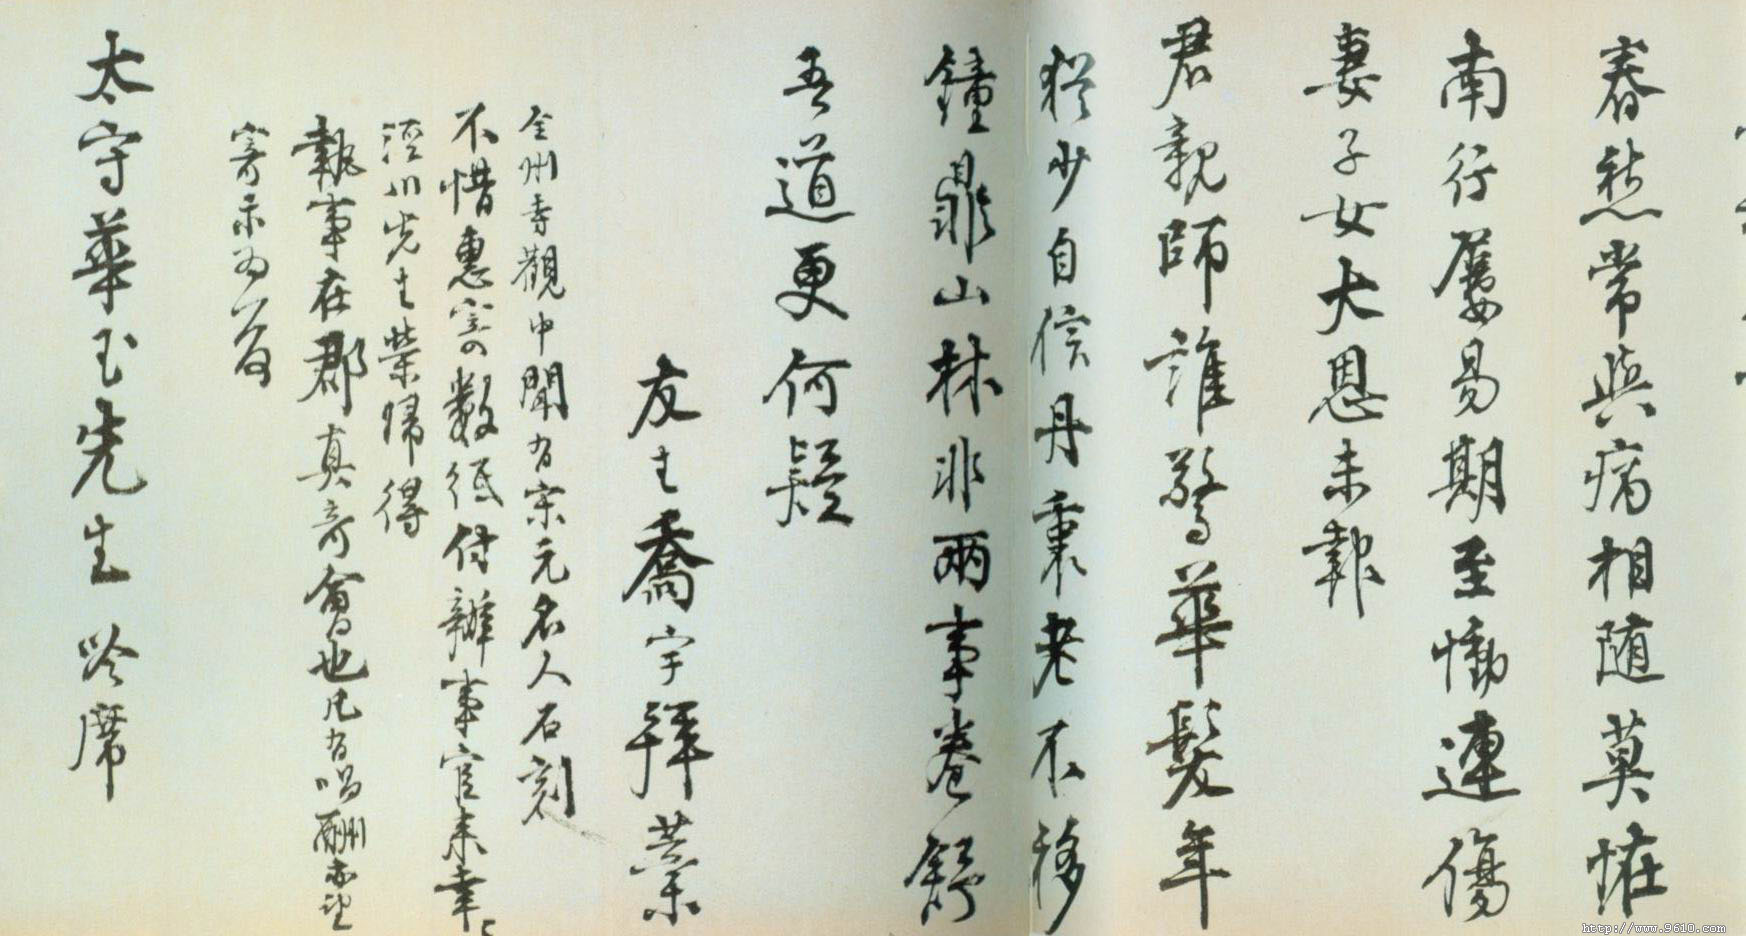 春愁常與病相随莫怪
南行屢易期至慟連傷
妻子女大恩未報
君親師誰驚華髮年
猶少自信丹衷老不移
鐘鼎山林非兩事卷舒
吾道更何疑
友生喬宇拜藁
全州寺觀中聞有宋元名人石刻
不惜惠寄數紙付辦事官来幸〻
涇川先生榮歸得
執事在郡真奇會也凡有唱酬亦望
寄示為荷
太守華玉先生吟席
http://www.9610.com